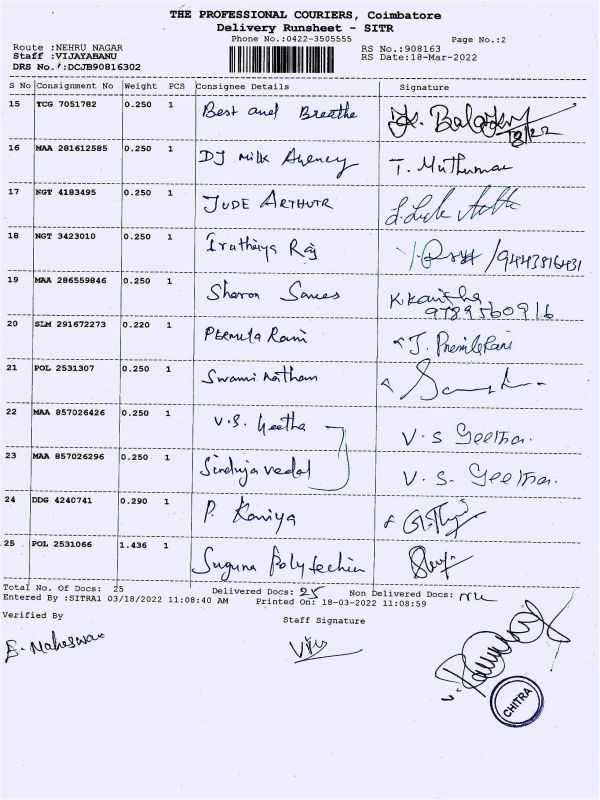 THE PROFESSIONAL COURIERS, Coimbatore
Delivery Runsheet - SITR
Phone No.:0422-3505555 Page No.:2
Route :NEHRU NAGAR RS No.:908163
Staff :VIJAYABANU RS Date:18-Mar-2022
DRS No.:DCJB90816302
S No Consignment No Weight PCS Consignee Details Signature
15 TCG 7051782 0.250 1 Best and Breathe
16 MAA 281612585 0.250 1 DJ Milk Agency T. Muthumar
17 NGT 4183495 0.250 1 JUDE ARTHUR
18 NGT 3423010 0.250 1 Iruthaya Raj /9443816431
19 MAA 286559846 0.250 1 Sharon
9789560916
20 SLM 291672273 0.220 1 Premila Rani J.
21 POL 2531307 0.250 1 Swaminathan
22 MAA 857026426 0.250 1 V.S. Geetha V.S Geetha.
23 MAA 857026296 0.250 1 V.S. Geetha.
24 DDG 4240741 0.290 1 P. Kaniya
25 POL 2531066 1.436 1 Suguna Polytechic
Total No. Of Docs: 25 Delivered Docs: 25 Non Delivered Docs: NIL
Entered By :SITRA1 03/18/2022 11:08:40 AM Printed On: 18-03-2022 11:08:59
Verified By Staff Signature
CHITRA